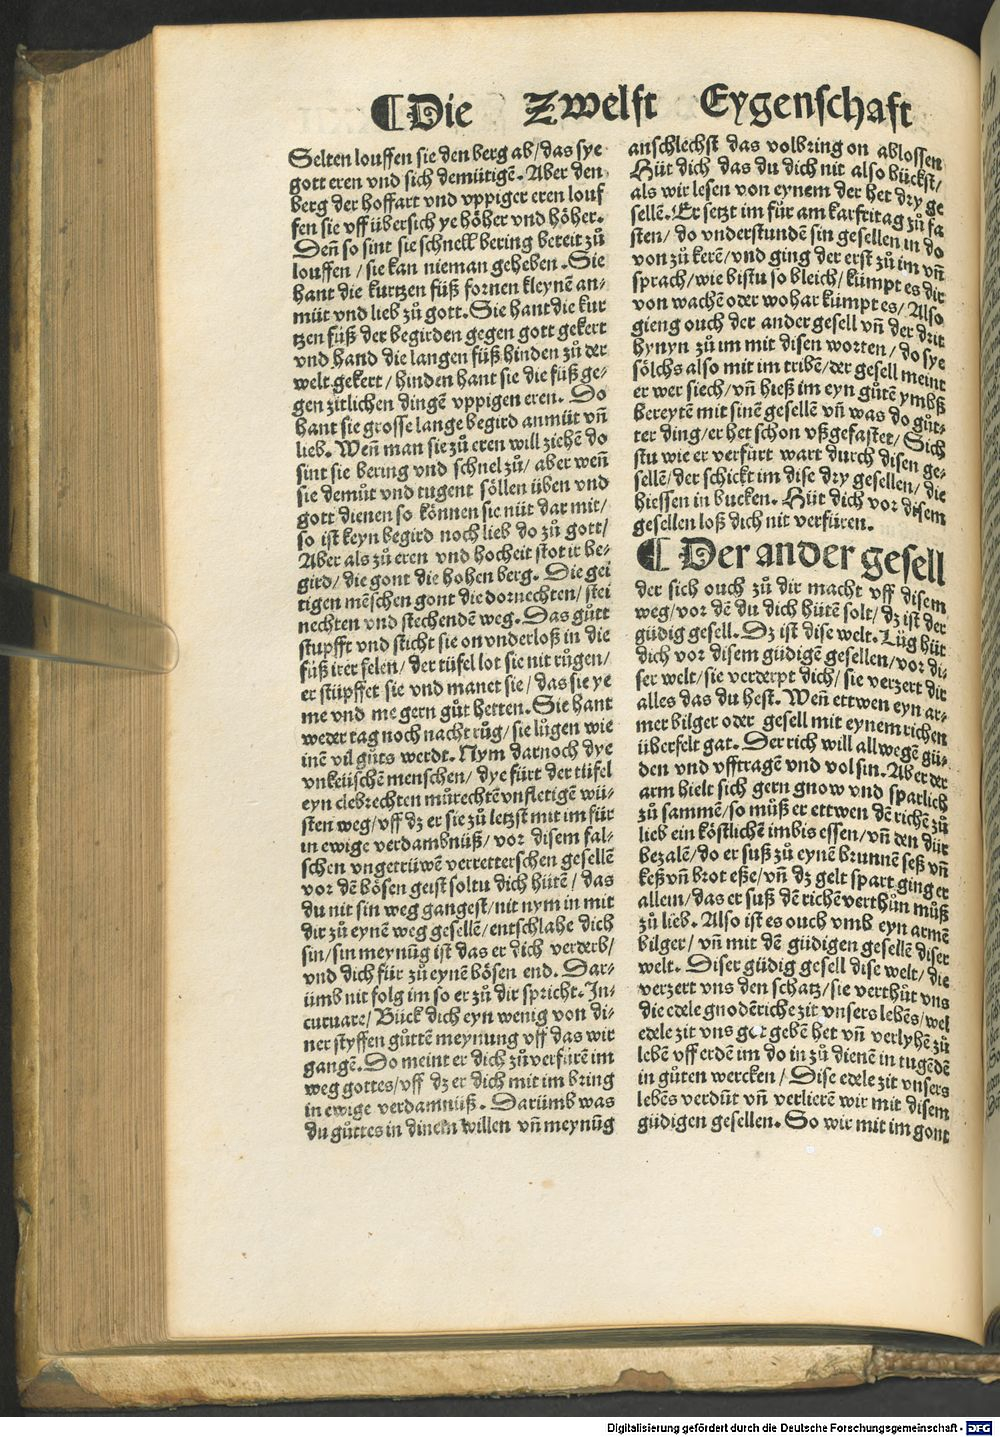 ¶ Die Zwelfft Eygenschafft
Selten louffen sie den berg ab/ das sye
gott eren vnd sich demütigē. Aber den
berg der hoffart vnd vppiger eren louf
fen sie vff übersich ye höher vnd höher.
Deñ so sint sie schnell bering bereit zů
louffen/ sie kan nieman geheben. Sie
hant die kurtzen füß fornen kleynen an-
müt vnd lieb zů gott. Sie hant die kur
tzen füß der begirden gegen gott gekert
vnd hand die langen füß hinden zů der
welt gekert/ hinden hant sie die füß ge-
gen zitlichen dingē vppigen eren. Do
hant sie grosse lange begird anmüt vñ
lieb. Weñ man sie zů eren will ziehē do
sint sie bering vnd schnel zů/ aber weñ
sie demůt vnd tugent söllen üben vnd
gott dienen so können sie nüt dar mit/
so ist keyn begird noch lieb do zů gott/
Aber als zů eren vnd hocheit stot ir be-
gird/ die gont die hohen berg. Die gei
tigen mēschen gont die dornechten/ stei
nechten vnd stechendē weg. Das gůtt
stupfft vnd sticht sie on vnderloß in die
füß irer selen/ der tüfel lot sie nit růgen/
er stüpffet sie vnd manet sie/ das sie ye
me vnd me gern gůt hetten. Sie hant
weder tag noch nacht růg/ sie lůgen wie
inē vil gůts werdt. Nym darnoch dye
vnkeüschē menschen/ dye fürt der tüfel
eyn elebrechten můrechtē vnfletigē wü-
sten weg/ vff dz er sie zů letzst mit im für
in ewige verdambnüß/ vor disem fal-
schen vngetrüwē verretterschen gesellē
vor dē bösen geist soltu dich hütē/ das
du nit sin weg gangest/ nit nym in mit
dir zů eynē weg gesellē/ entschlahe dich
sin/ sin meynūg ist das er dich verderb/
vnd dich für zů eynē bösen end. Dar-
ümb nit folg im so er zů dir spricht. In-
curuare/ Bück dich eyn wenig von di-
ner styffen gůttē meynung vff das wir
gangē. Do meint er dich zů verfürē im
weg gottes/ vff dz er dich mit im bring
in ewige verdamnüß. Darümb was
du gůttes in dinem willen vñ meynūg
anschlechst das volbring on ablossen
Hüt dich das du dich nit also bückst/
als wir lesen von eynem der het dry ge
sellē. Er setzt im für am karfritag zů fa
sten/ do vnderstundē sin gesellen in do
von zů kerē/ vnd ging der erst zů im vñ
sprach/ wie bistu so bleich/ kümpt es dir
von wachē oder wo har kümpt es/ Also
gieng ouch der ander gesell vñ der drit
hynyn zů im mit disen worten/ do sye
sölchs also mit im tribē/ der gesell meint
er wer siech/ vñ hieß im eyn gůtē ymbß
bereytē mit sinē gesellē vñ was do gůt-
ter ding/ er het schon vßgefastet/ Sich
stu wie er verfürt wart durch disen ge-
sellē/ der schickt im dise dry gesellen/ die
hiessen in bucken. Hüt dich vor disem
gesellen loß dich nit verfüren.
¶ Der ander gesell
der sich ouch zů dir macht vff disem
weg/ vor dē du dich hütē solt/ dz ist der
güdig gesell. Dz ist dise welt. Lůg hüt
dich vor disem güdigē gesellen/ vor di-
ser welt/ sie verderpt dich/ sie verzert dir
alles das du hest. Weñ ettwen eyn ar-
mer bilger oder gesell mit eynem richen
überfelt gat. Der rich will allwegē gü-
den vnd vfftragē vnd vol sin. Aber der
arm hielt sich gern gnow vnd sparlich
zů sammē/ so můß er ettwen dē richē zů
lieb ein köstlichē imbis essen/ vñ den dür
bezalē/ do er suß zů eynē brunnē seß vñ
keß vñ brot eße/ vñ dz gelt spart ging er
allein/ das er suß dē richē verthůn můß
zů lieb. Also ist es ouch vmb eyn armē
bilger/ vñ mit dē güdigen gesellē diser
welt. Diser güdig gesell dise welt/ die
verzert vns den schatz/ sie verthůt vns
die edele gnodēriche zit vnsers lebēs/ wel
edele zit vns got gebē het vñ verlyhē zů
lebē vff erdē im do in zů dienē in tugēdē
in gůten wercken/ Dise edele zit vnsers
lebēs verdůt vñ verlierē wir mit disem
güdigen gesellen. So wir mit im gont
Digitalisierung gefördert durch die Deutsche Forschungsgemeinschaft - DFG